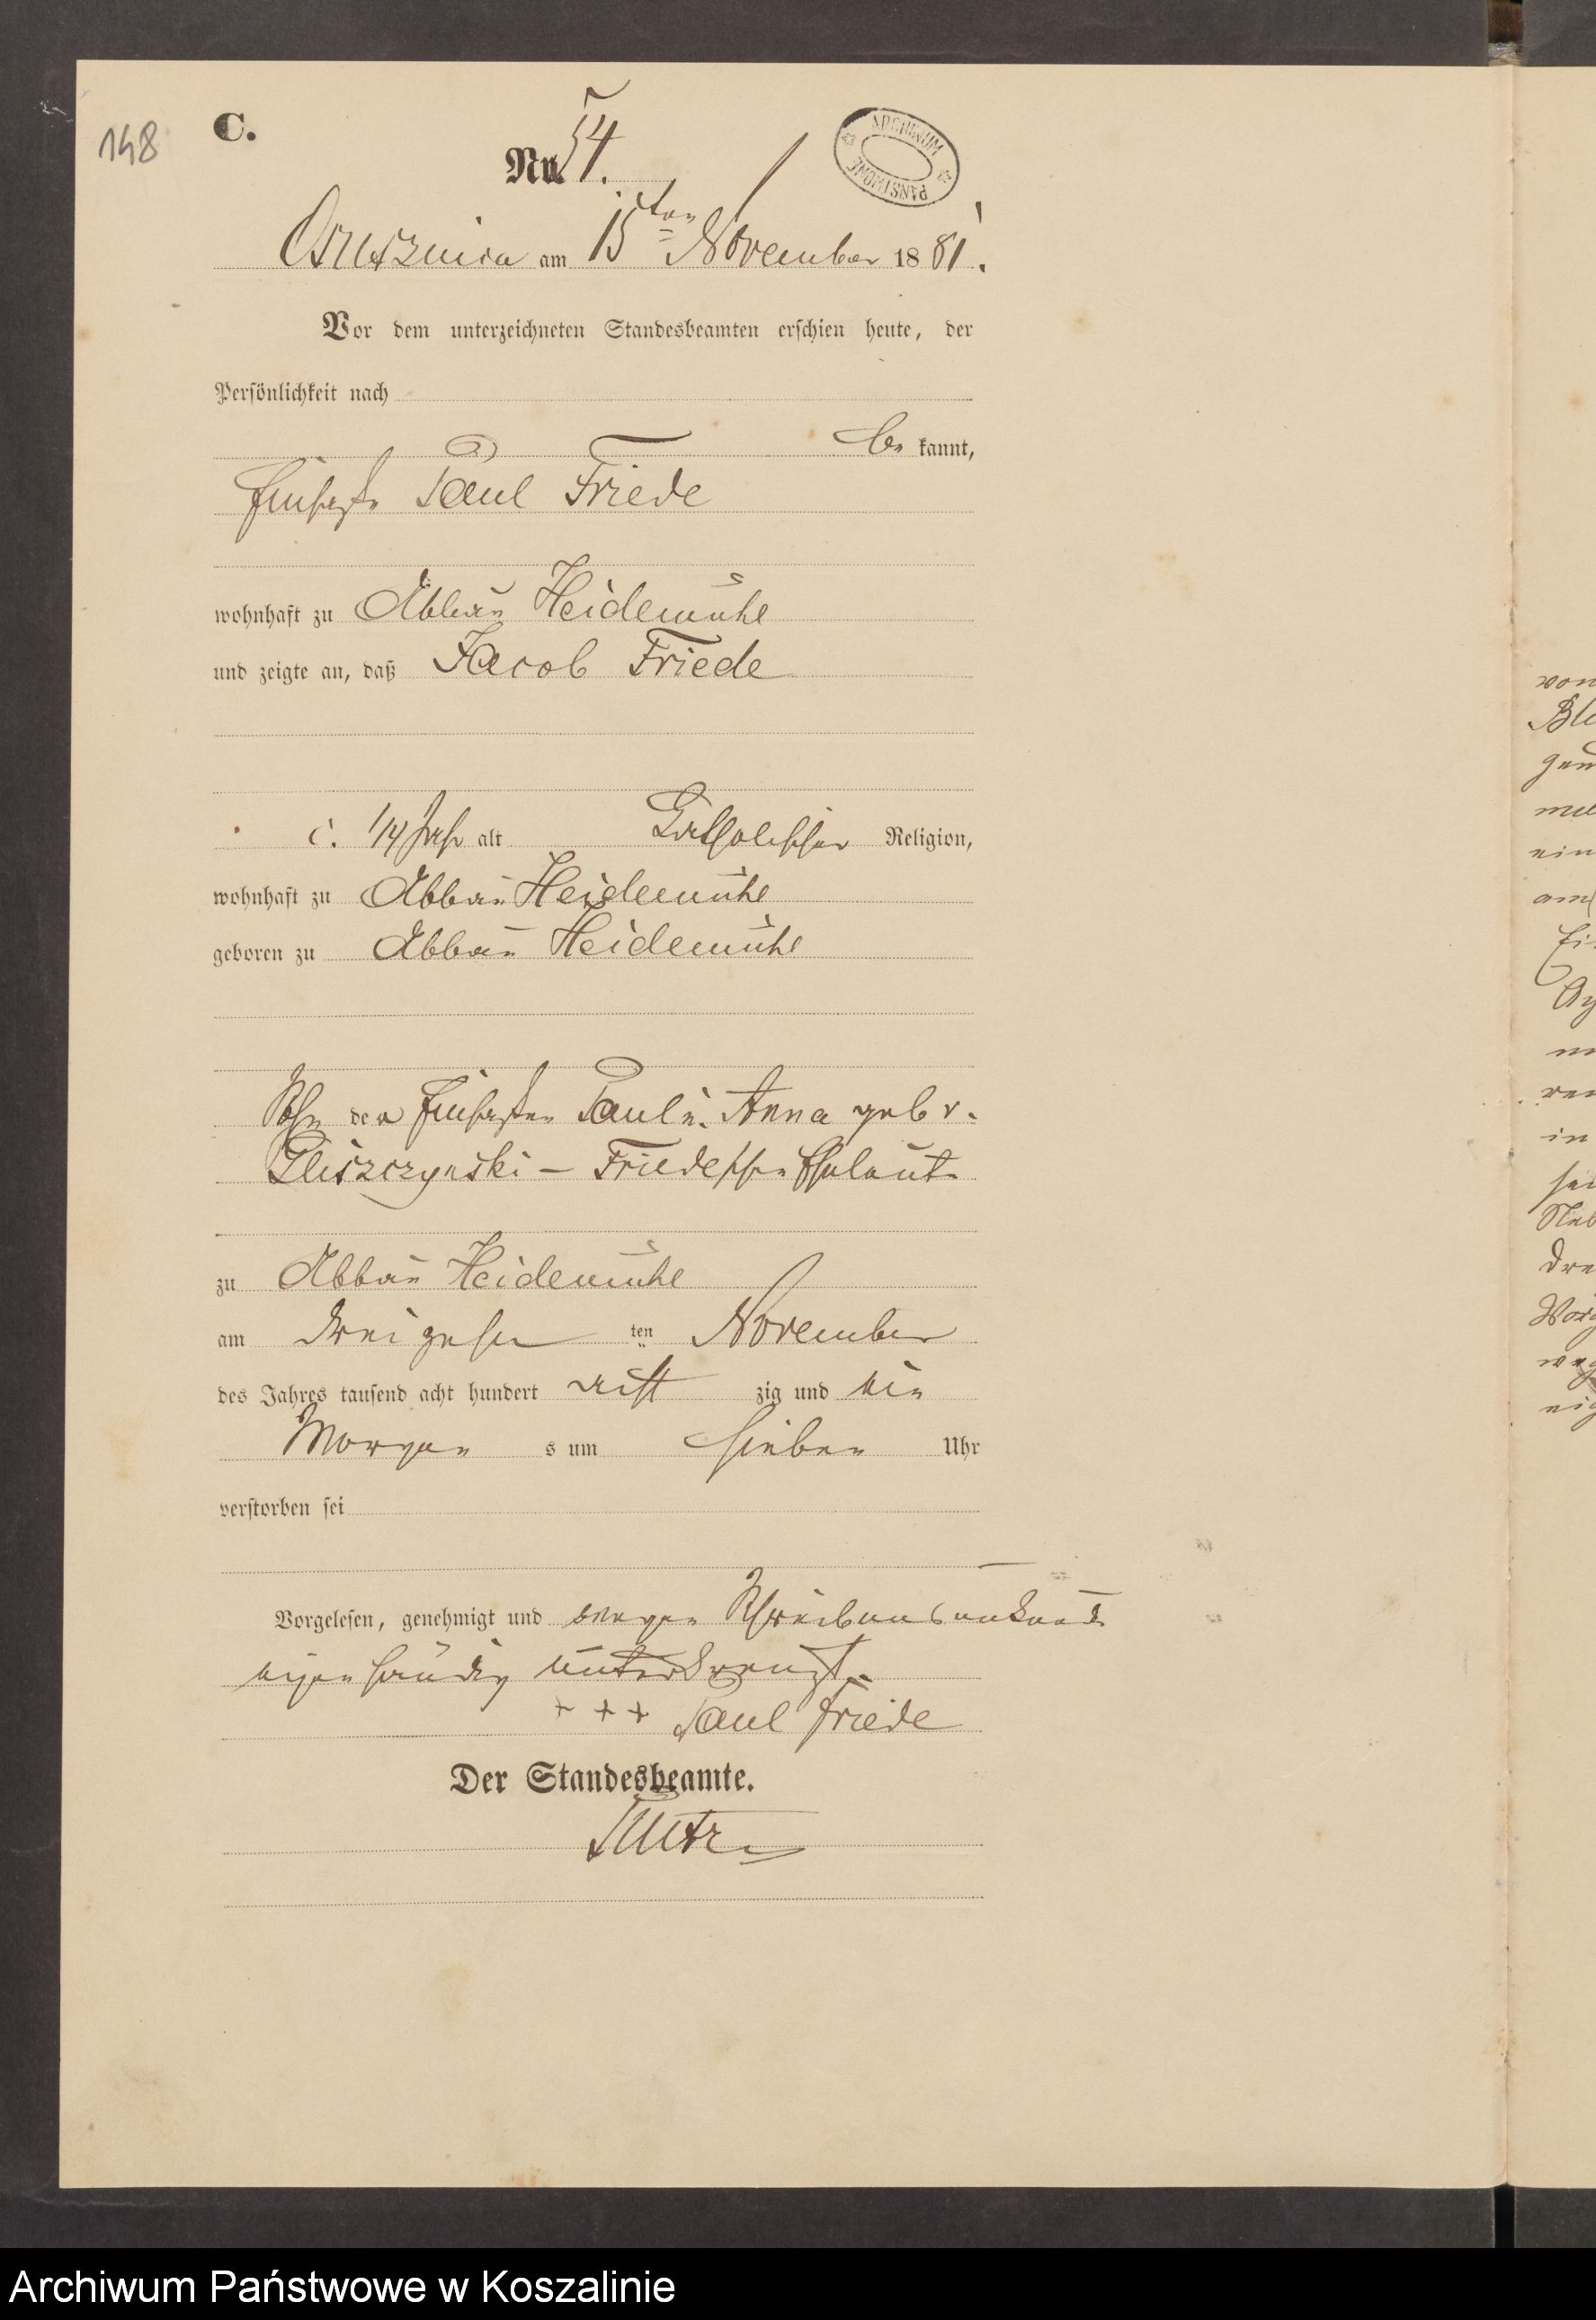 148
C.
Nr. 54.
ARCHIWUM PAŃSTWOWE
Ossusznica am 15ten November 1881.
Vor dem unterzeichneten Standesbeamten erschien heute, der
Persönlichkeit nach
be kannt,
Paul Friede
wohnhaft zu Abbau Heidemühl
und zeigte an, daß Jacob Friede
c. 1/4 Jahr alt Katholischer Religion,
wohnhaft zu Abbau Heidemühl
geboren zu Abbau Heidemühl
Sohn der Paul u. Anna geb v.
Gliszczynski – Friedeschen Eheleute
zu Abbau Heidemühl
am dreizehn ten November
des Jahres tausend acht hundert acht zig und ein
Morgen s um sieben Uhr
verstorben sei
Vorgelesen, genehmigt und wegen Schreibensunkunde
eigenhändig unterkreuzt.
+ + + Paul Friede
Der Standesbeamte.
von
Bl
ein
in
Archiwum Państwowe w Koszalinie